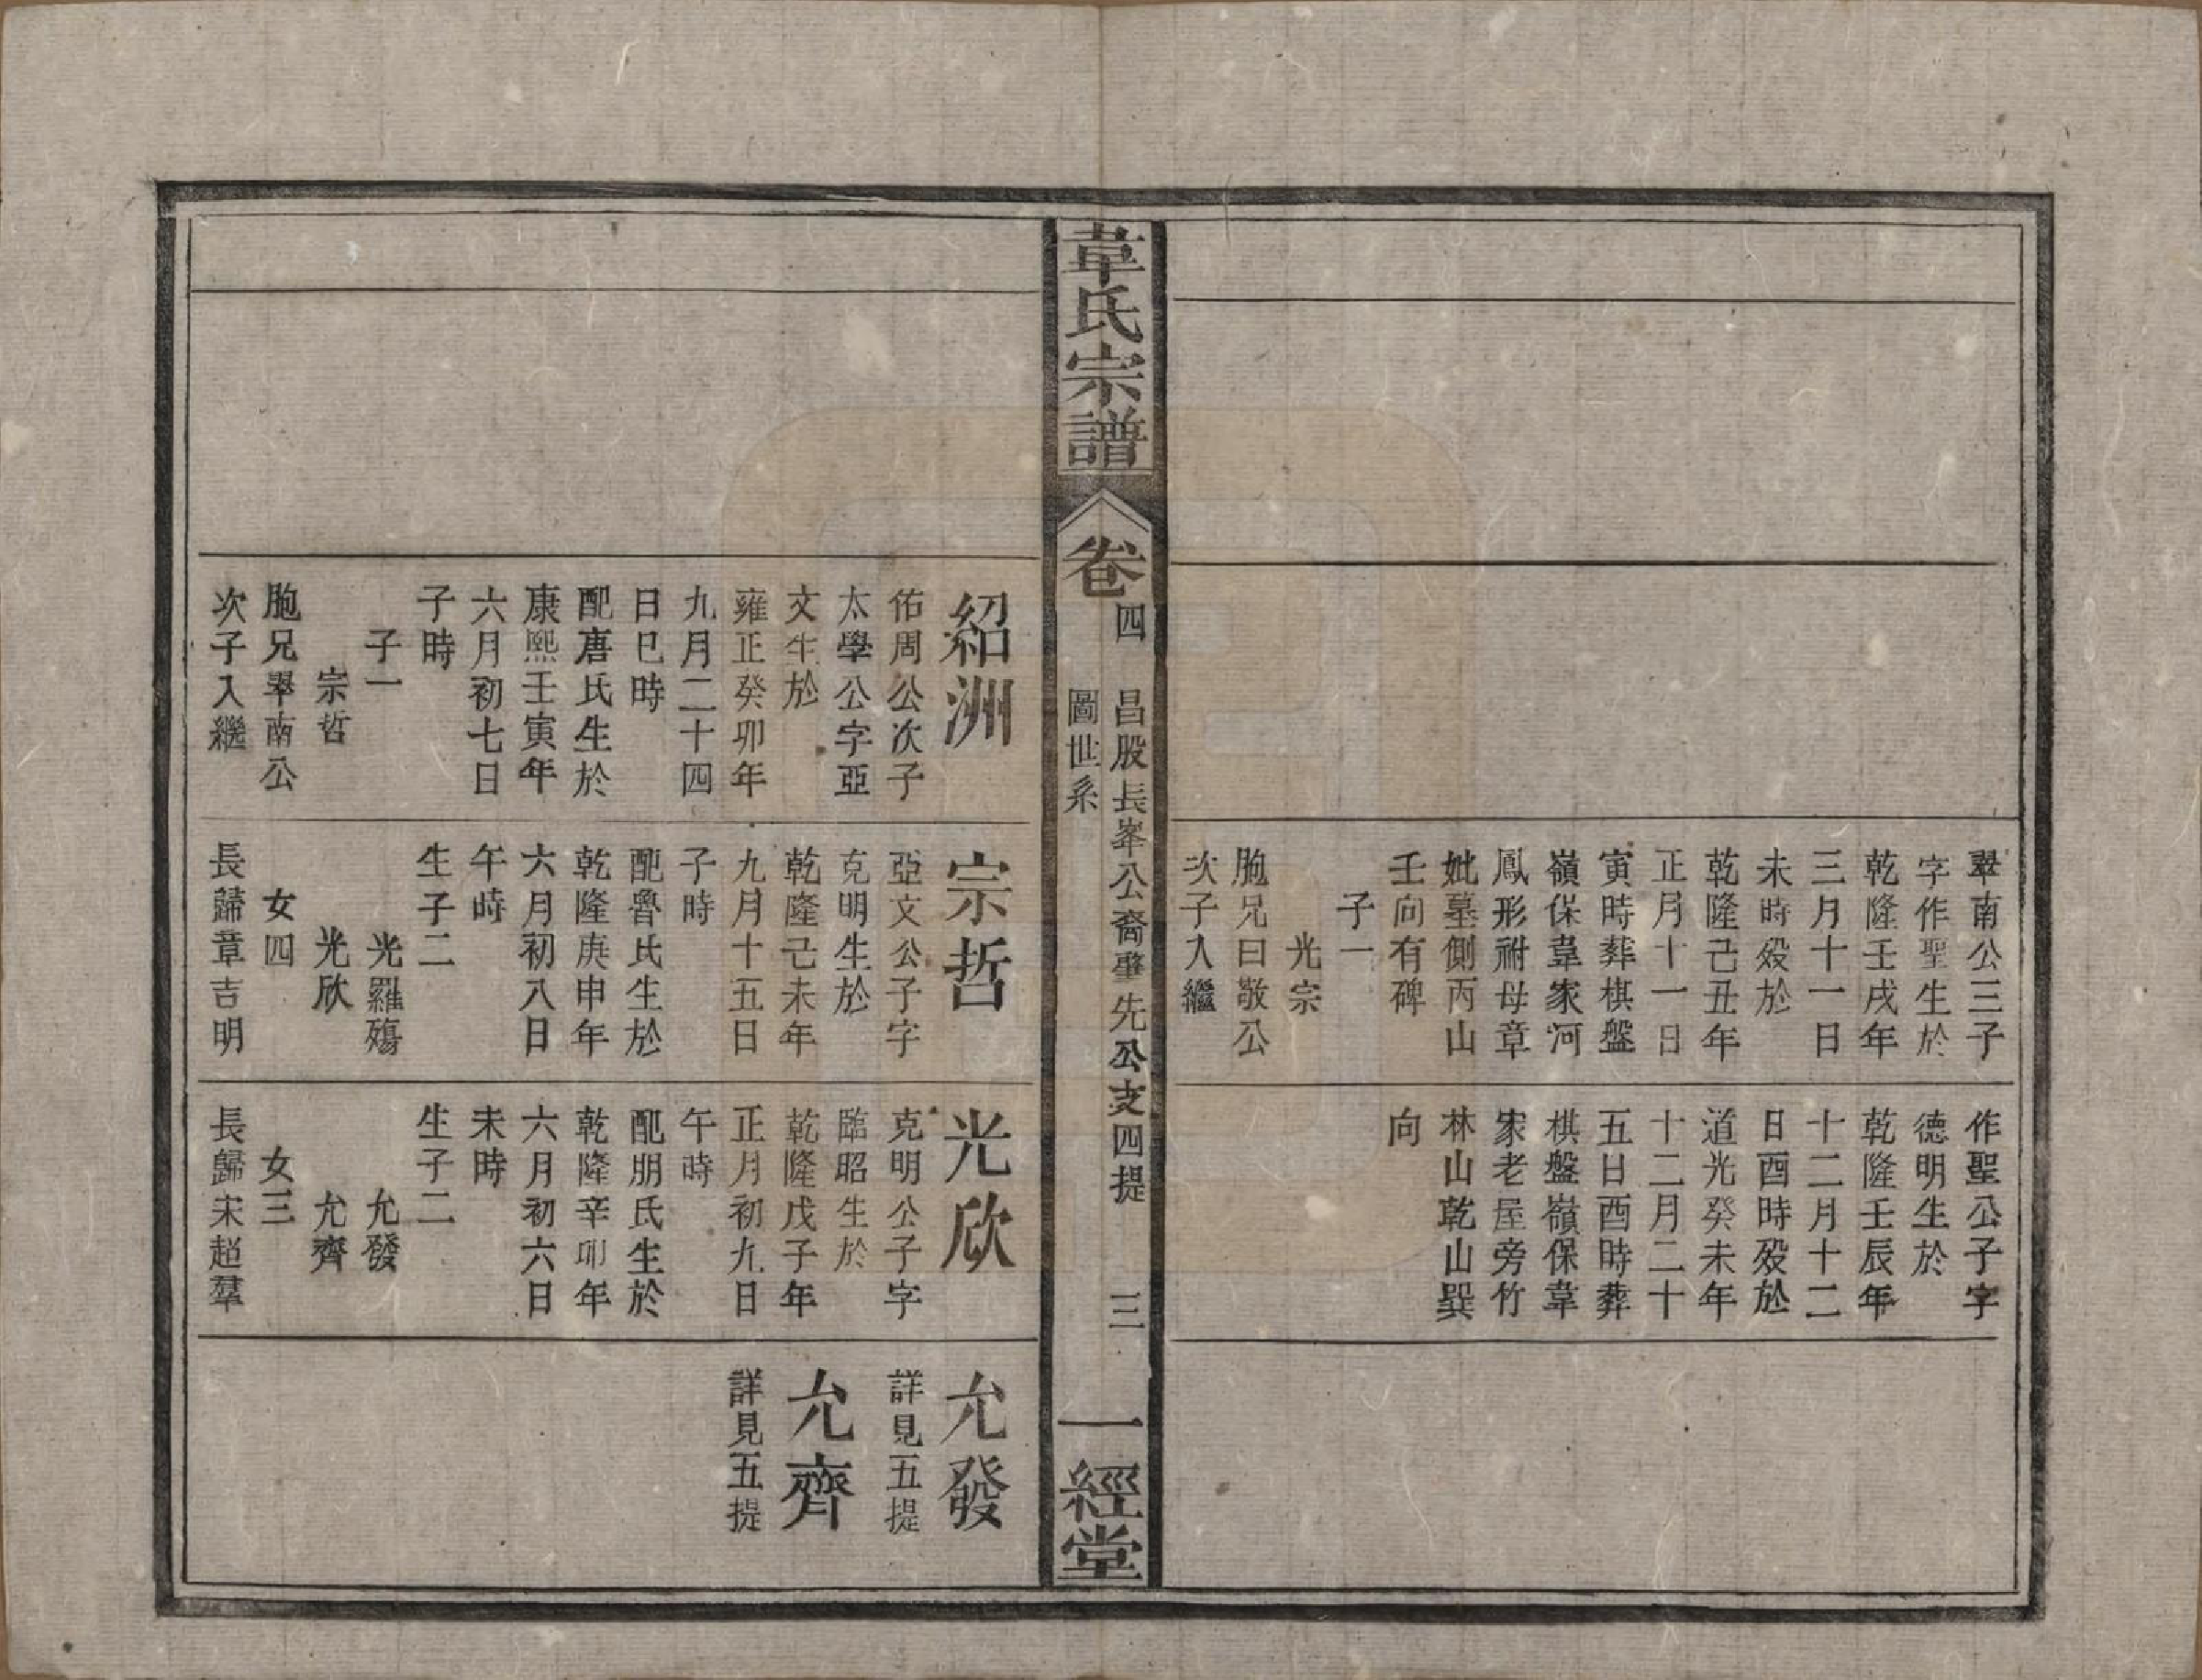 翠南公三子
字作聖生於
乾隆壬戌年
三月十一日
未時殁於
乾隆己丑年
正月十一日
寅時葬棋盤
嶺保韋家河
鳳形祔母章
妣墓側丙山
壬向有碑
子一
光宗
胞兄曰敬公
次子入繼
作聖公子字
德明生於
乾隆壬辰年
十二月十二
日酉時殁於
道光癸未年
十二月二十
五日酉時葬
棋盤嶺保韋
家老屋旁竹
林山乾山巽
向
韋氏宗譜
卷四
昌股長峯公裔肇先公支四提
圖世系
三
一經堂
紹洲
佑周公次子
太學公字亞
文生於
雍正癸卯年
九月二十四
日巳時
配唐氏生於
康熙壬寅年
六月初七日
子時
子一
宗哲
胞兄翠南公
次子入繼
宗哲
亞文公子字
克明生於
乾隆己未年
九月十五日
子時
配魯氏生於
乾隆庚申年
六月初八日
午時
生子二
光羅殤
光欣
女四
長歸章吉明
光欣
克明公子字
臨昭生於
乾隆戊子年
正月初九日
午時
配朋氏生於
乾隆辛卯年
六月初六日
未時
生子二
允發
允齊
女三
長歸宋超羣
允發
詳見五提
允齊
詳見五提